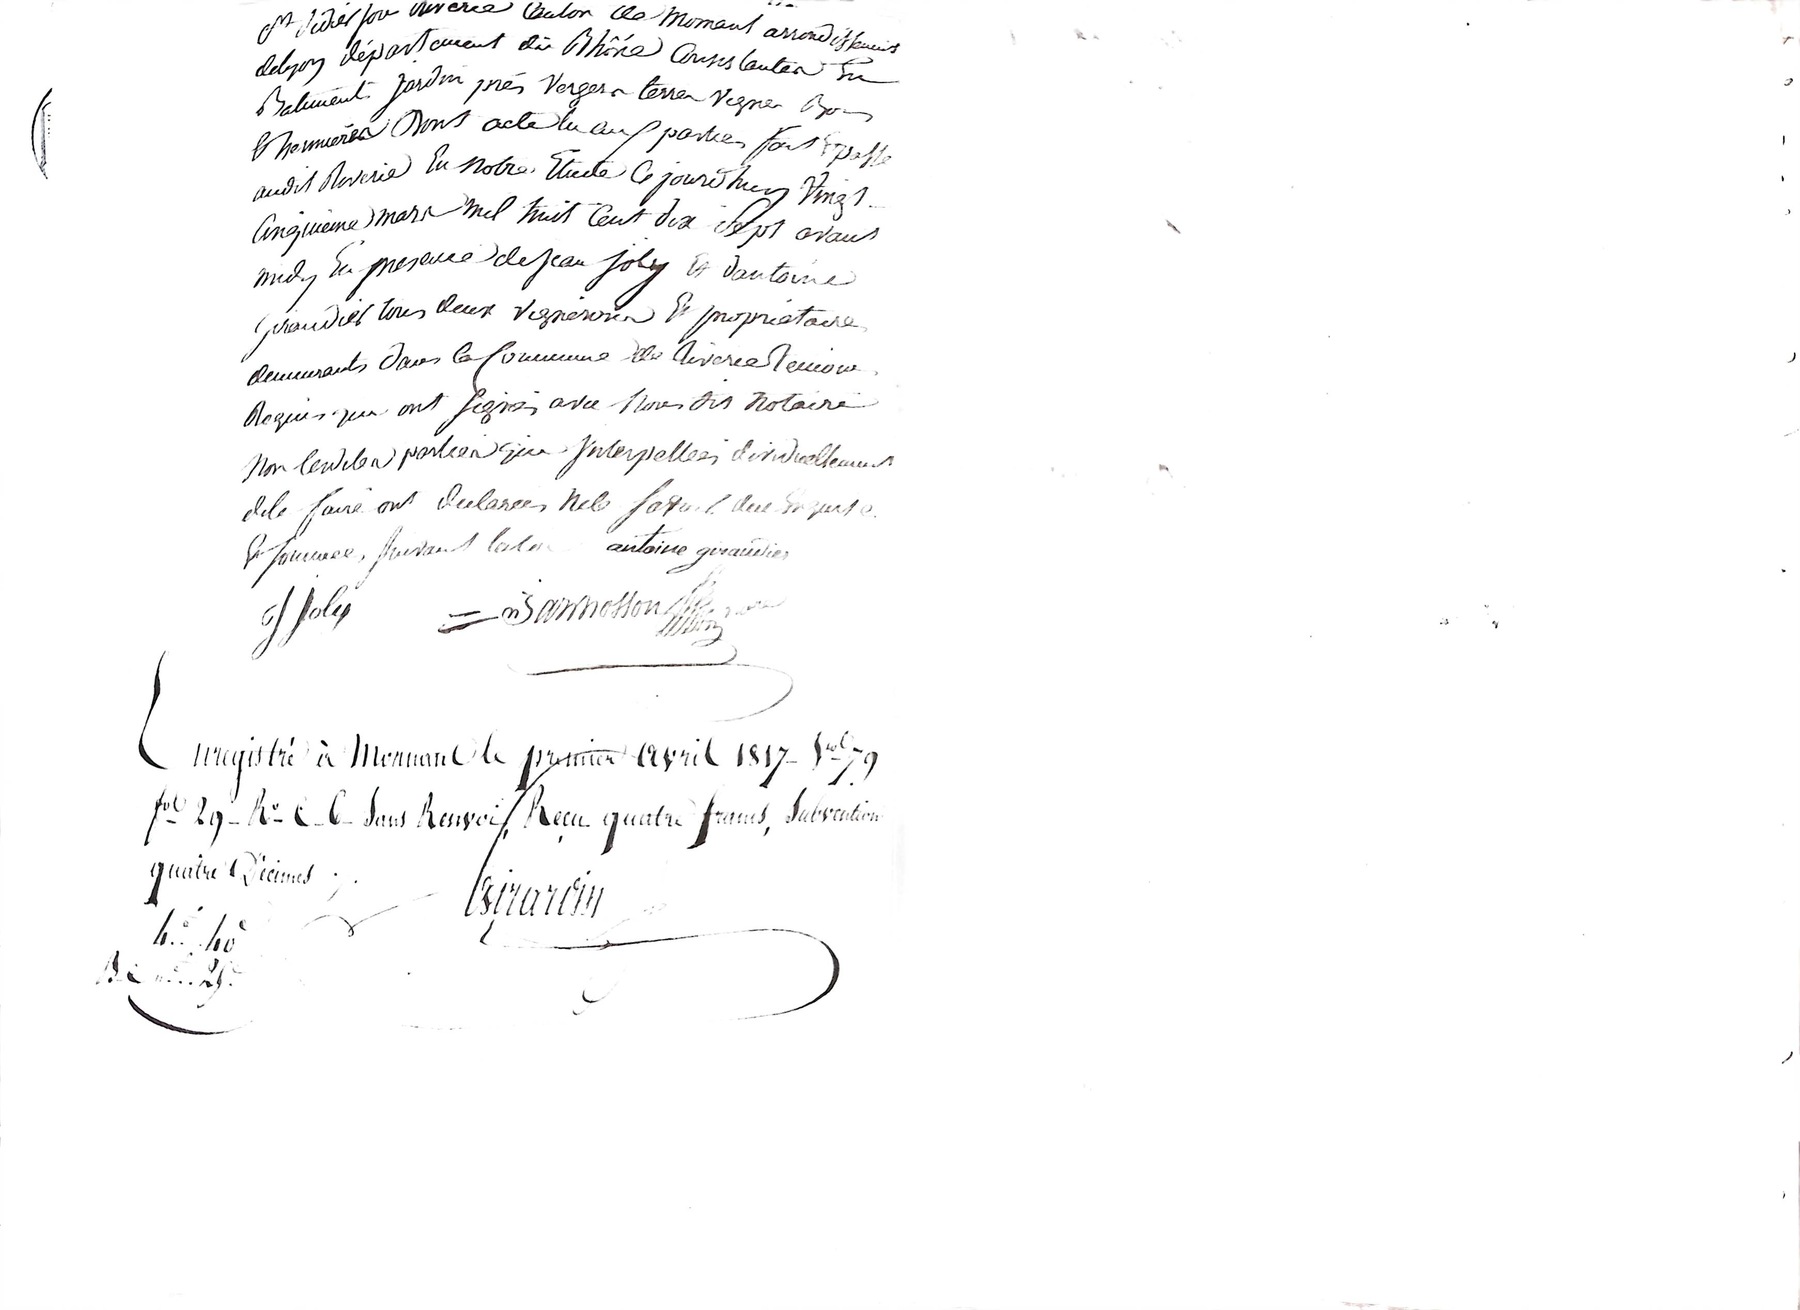 St Didier sou Riverie Canton de Mornant arrondissement
delyon département du Rhône Consistantes En
Batiments Jardin prés Vergers terres vignes Bois
& hermieres Dont acte lu aux parties fait & passé
audit Riverie En notre Etude Ce jourd'huy Vingt
Cinquieme mars mil huit Cent dix Sept avant
midy En presence de Jean Joly Et d'antoine
giraudier tous deux vignerons Et propriétaires
demeurants dans la Commune de Riverie temoins
Requis qui ont signés avec Nous dit Notaire
Non lesdites parties qui Interpellées individuellement
dele faire ont declarées ne le savoir de ce Enquise
& sommées suivant laloi antoine giraudier
J Joly Bannosson
Enregistré à Mornant le premier avril 1817 Vol 79
fol 29 Ro C. 6 Sans Renvoi, Reçu quatre francs, Subvention
quatre Décimes
Girardin
4 40